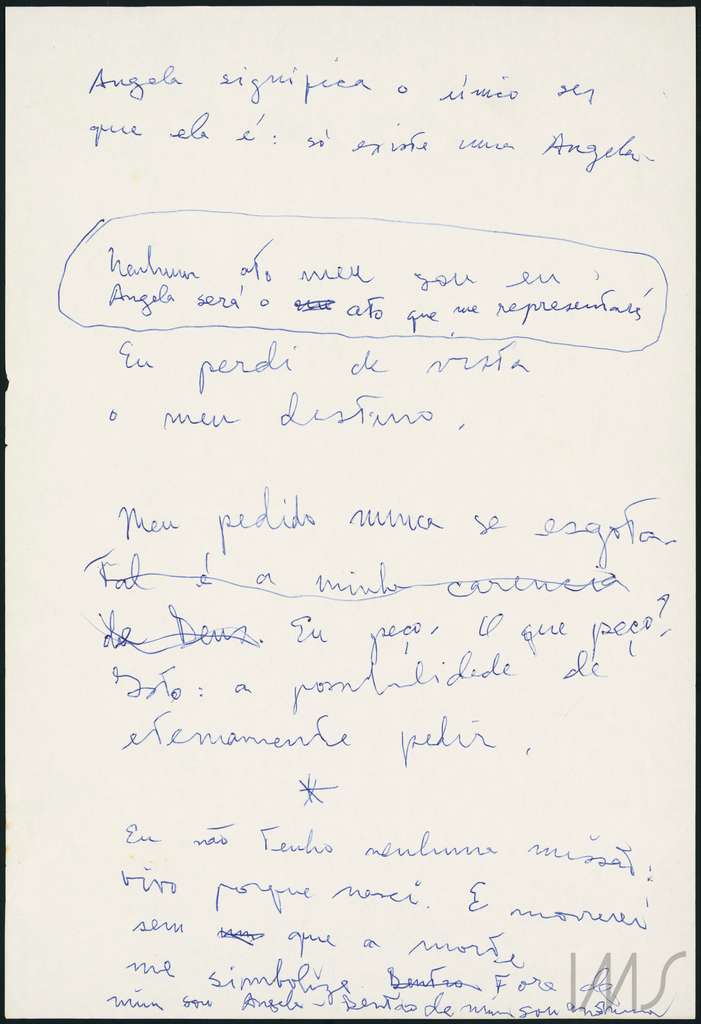 Angela significa o único ser
que ela é: só existe uma Angela.
Nenhum ato meu sou eu,
Angela será o ato que me representará
Eu perdi de vista
o meu destino.
Meu pedido nunca se esgota.
Tal é a minha carencia
de Deus. Eu peço. O que peço?
Isto: a possibilidade de
eternamente pedir.
*
Eu não tenho nenhuma missão:
vivo porque nasci. E morrerei
sem que a morte
me simbolize. Dentro Fora de
mim sou Angela - Dentro de mim sou anônima
IMS